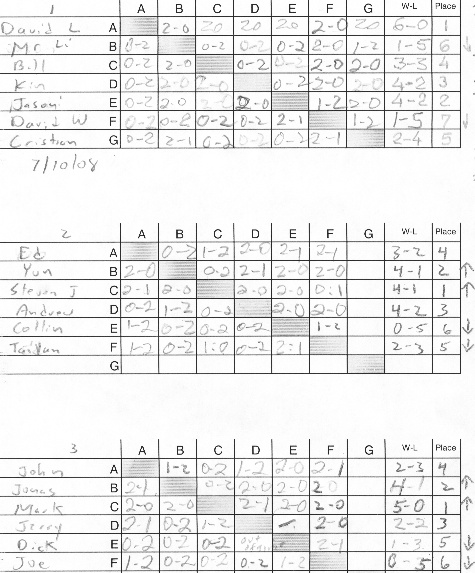 1 A B C D E F G W-L Place
David L A 2-0 20 20 20 2-0 20 6-0 1
Mr Li B 0-2 0-2 0-2 0-2 2-0 1-2 1-5 6 ↓
Bill C 0-2 2-0 0-2 0-2 2-0 2-0 3-3 4
Kin D 0-2 2-0 2-0 0-2 2-0 2-0 4-2 3
Jason E 0-2 2-0 2-0 1-2 2-0 4-2 2
David W F 0-2 0-2 0-2 0-2 2-1 1-2 1-5 7 ↓
Cristian G 0-2 2-1 0-2 0-2 0-2 2-1 2-4 5
7/10/08
2 A B C D E F G W-L Place
Ed A 0-2 1-2 2-0 2-1 2-1 3-2 4
Yun B 2-0 0-2 2-1 2-0 2-0 4-1 2 ↑
Steven J C 2-1 2-0 2-0 2-0 0:1 4-1 1 ↑
Andrew D 0-2 1-2 0-2 2-0 2-0 4-2 3
Collin E 1-2 0-2 0-2 0-2 1-2 0-5 6 ↓
F 1-2 0-2 1:0 0-2 2:1 2-3 5 ↓
G
3 A B C D E F G W-L Place
John A 1-2 0-2 1-2 2-0 2-1 2-3 4
Jonas B 2-1 0-2 2-0 2-0 2-0 4-1 2 ↑
Mark C 2-0 2-0 2-1 2-0 2-0 5-0 1 ↑
Jerry D 2-1 0-2 1-2 2-0 2-2 3
Dick E 0-2 0-2 0-2 2-1 1-3 5 ↓
Joe F 1-2 0-2 0-2 0-2 1-2 0-5 6 ↓